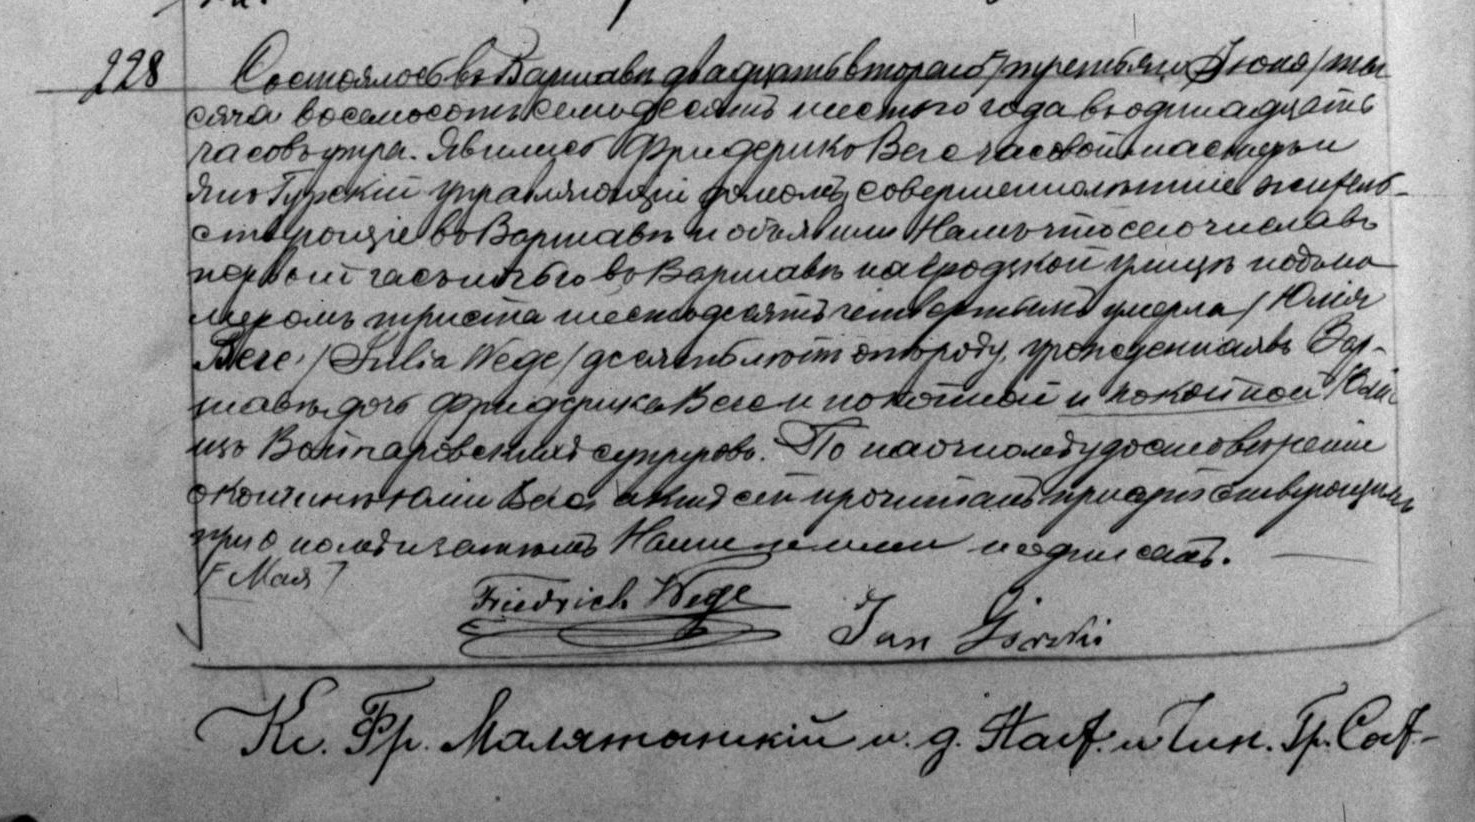 228 Состоялось въ Варшавѣ двадцать втораго /третьяго Іюня/ ты
сяча восемьсотъ семьдесятъ шестого года въ одинадцать
часовъ утра. Явились Фридерикъ Веге часовой мастеръ и
Янъ Гурскій управляющій домомъ, совершеннолѣтніе житель-
ствующіе въ Варшавѣ и объявили Намъ что сего числа въ
первый часъ ночью въ Варшавѣ на Гродзкой улицѣ подъ но
меромъ триста шестьдесятъ четвертымъ умерла / Юлія
Веге / Julia Wege / десять лѣтъ отъ роду, урожденная въ Вар-
шавѣ, дочь Фридерика Веге и покойной и покойной
Войпаровскихъ супруговъ. По наочномъ удостовѣреніи
о кончинѣ Юліи Веге, актъ сей прочитанъ присутствующимъ
при ономъ и затѣмъ Нами и ними подписанъ.
/ Мая /
Friedrich Wege
Jan Górski
Кс. Фр. Малятынскій и. д. Наст. и Чин. Гр. Сост-